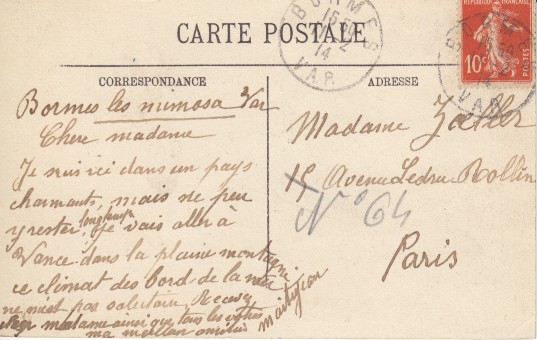 CARTE POSTALE
BORMES
15 2
14
VAR
REPUBLIQUE FRANÇAISE
10c
POSTES
CORRESPONDANCE
Bormes les mimosa Var
Chere madame
Je suis ici dans un pays
charmants, mais ne peu
y rester longtemps, je vais aller à
Vance dans la plaine montagne
ce climat des bord de la mer
ne m'est pas salutaire. Recevez
madame ainsi que tous les vôtres
ma meilleur amitié
ADRESSE
Madame
15 Avenue Ledru Rollin
N° 64
Paris